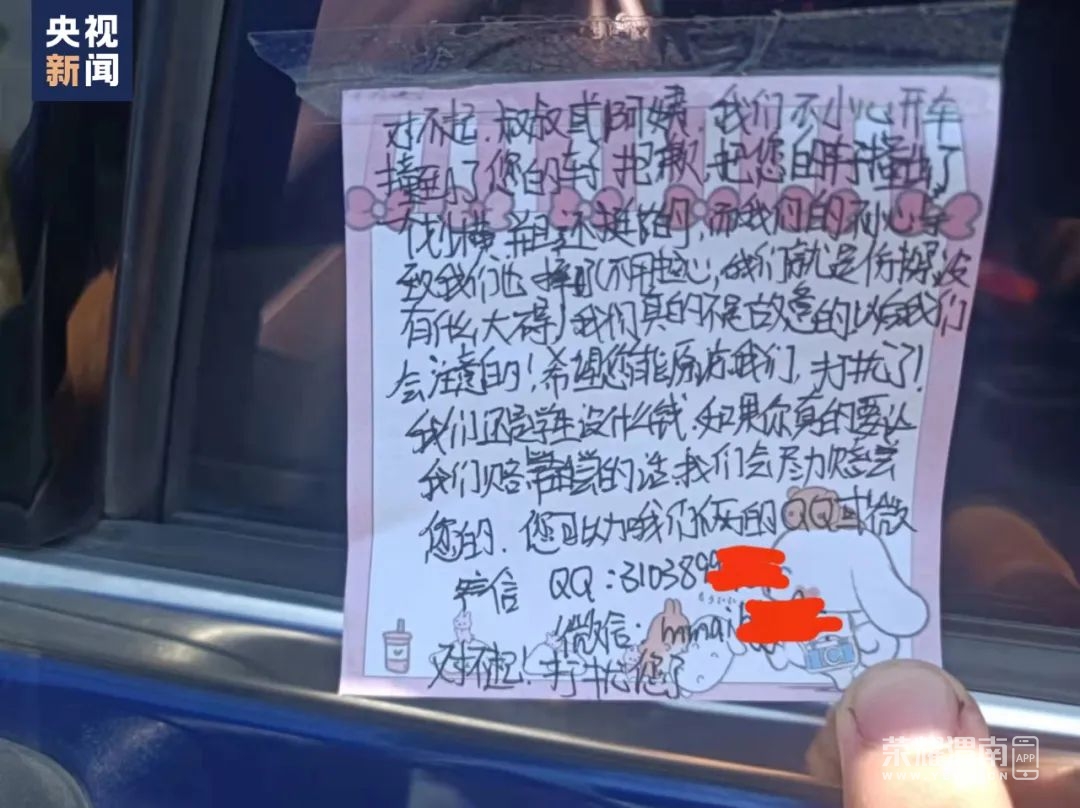 央视
新闻
对不起,叔叔或阿姨,我们不小心开车
撞到了您的车子,抱歉,把您的车子撞出了
划横,并且还挺的,而我们的不小心导
致我们也摔了(不用担心,我们就是伤损没
有什么大碍)我们真的不是故意的以后我们
会注意的!希望您能原谅我们,打扰了!
我们还是学生没什么钱,如果你真的要让
我们赔偿的话,我们会尽力赔尝
您的.您可以加我们俩的QQ或微
信 QQ:3103899
微信:
对不起!打扰您了
荣耀渭南
APP